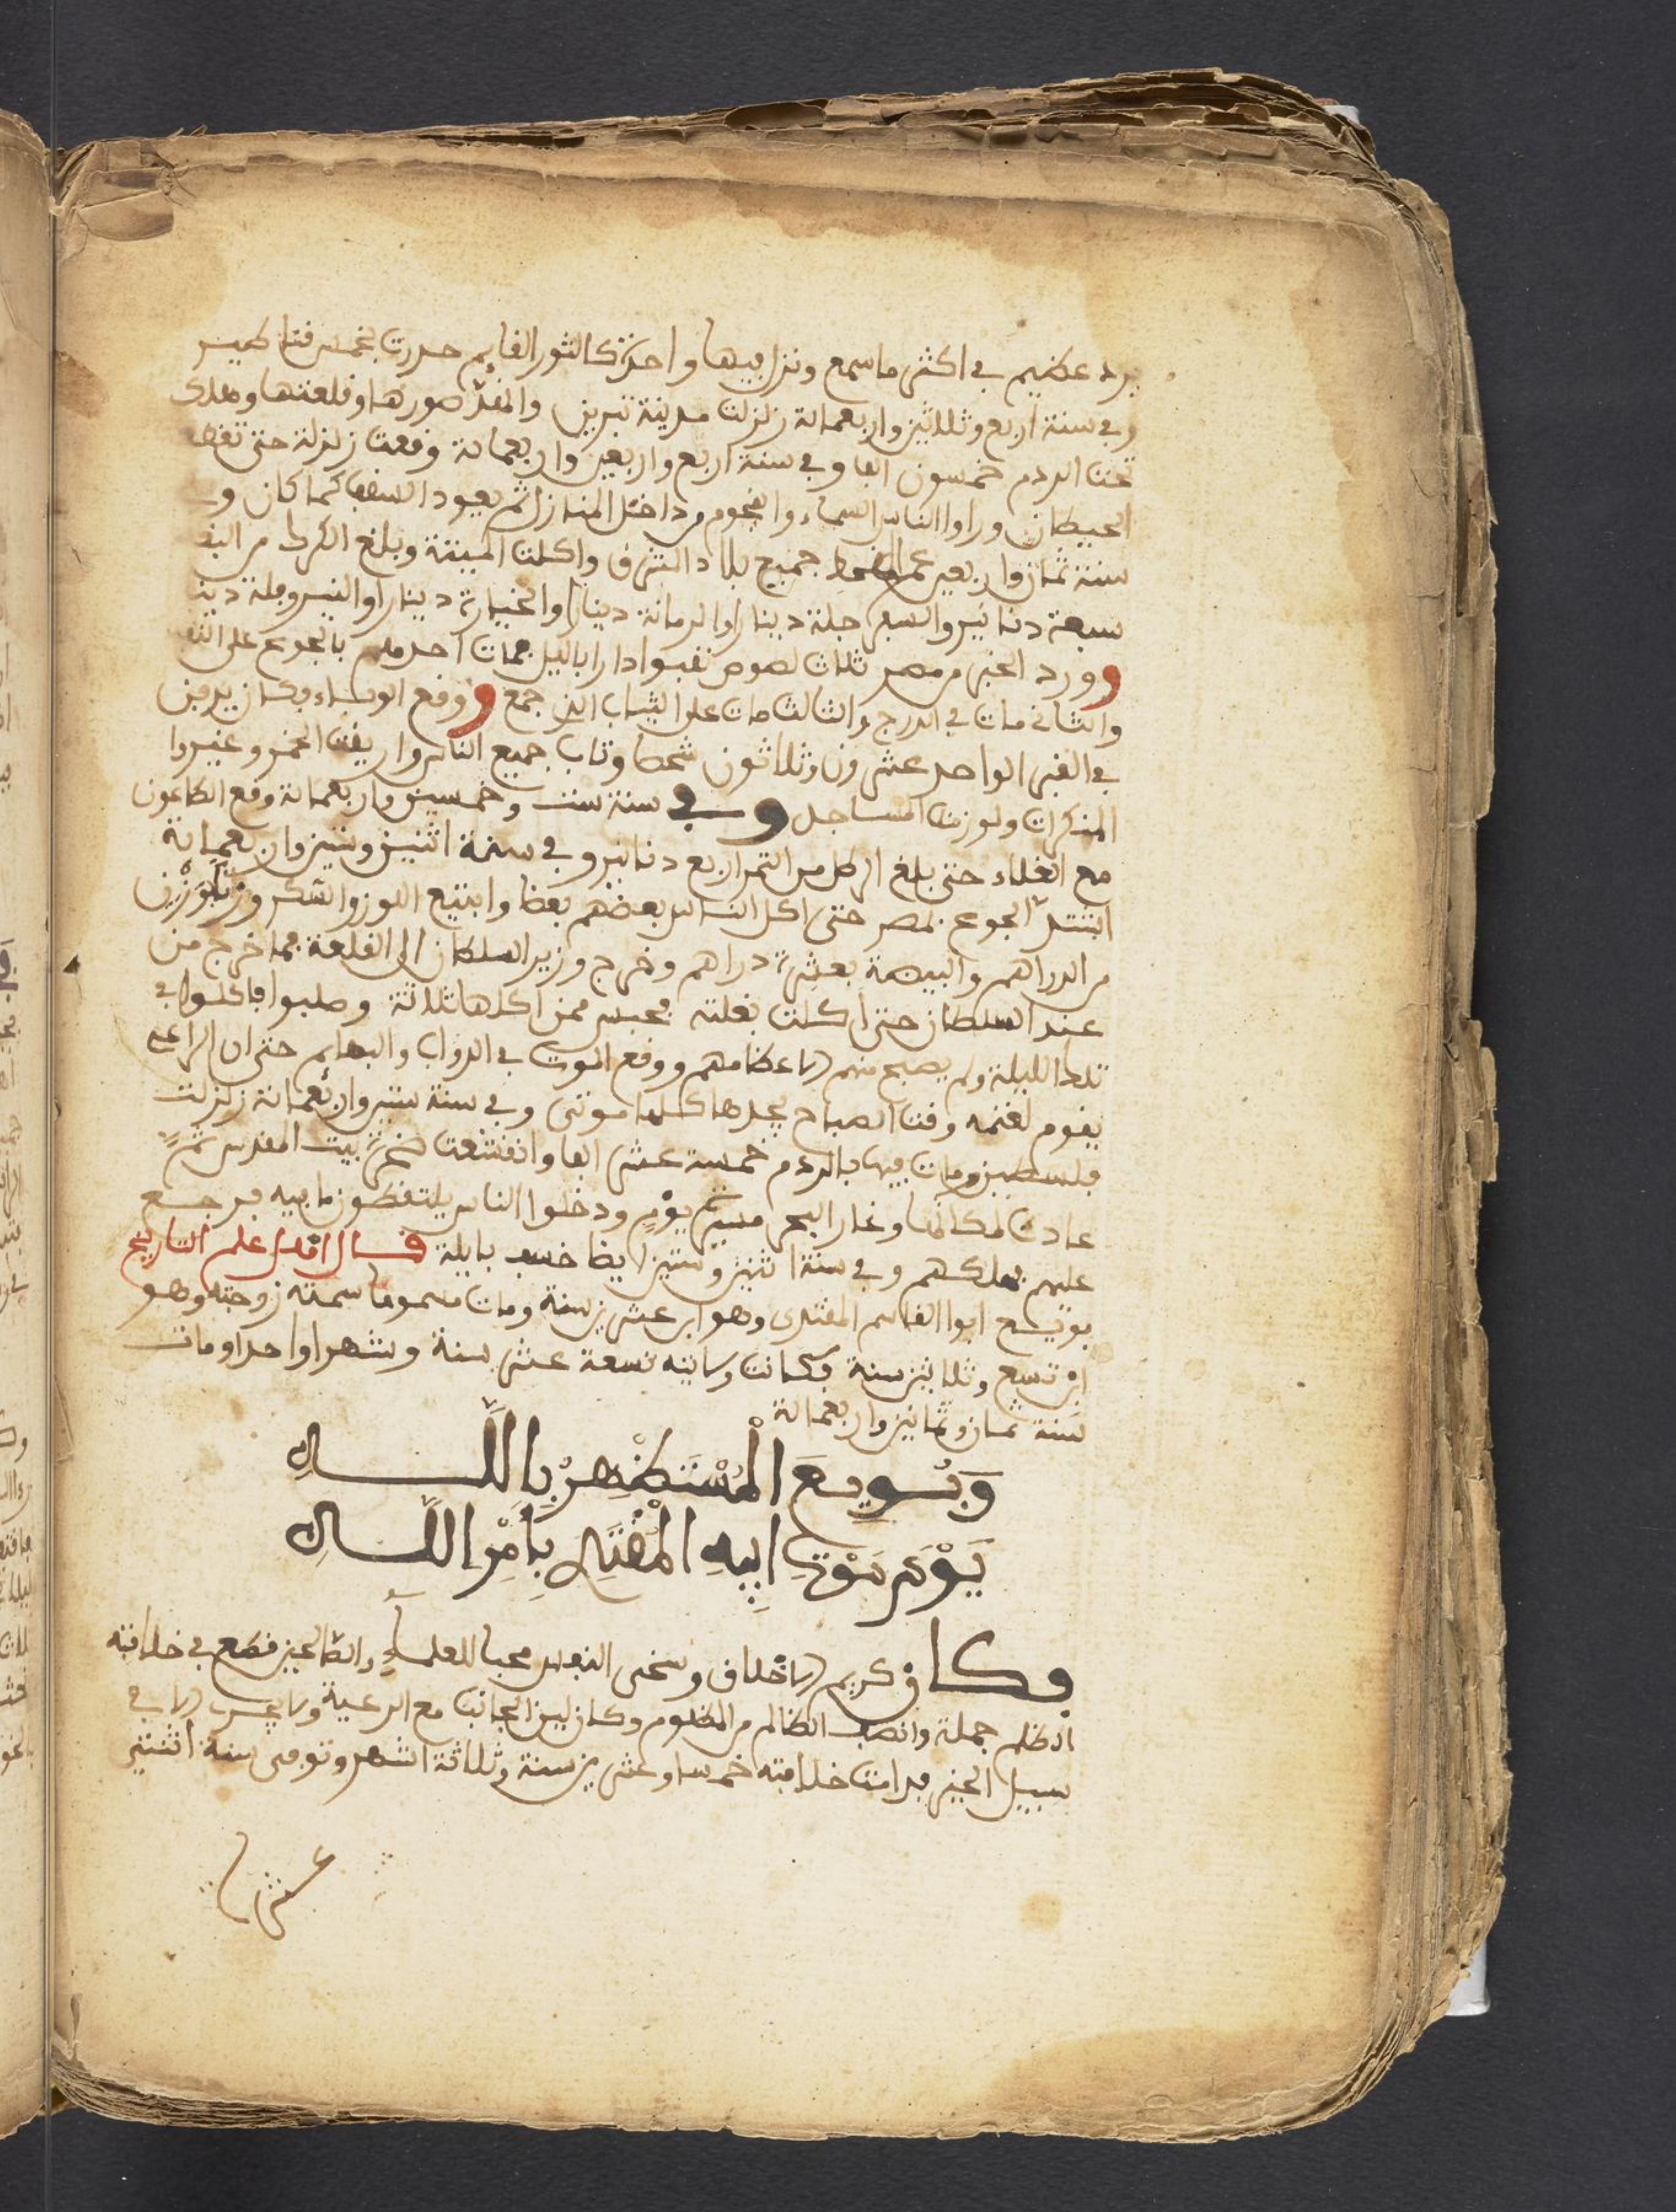 برد عظيم في اكثر ما سمع ونزل فيها واحدة كالثور القايم حدرت بخمس قناطير
وفي سنة اربع وثلاثين واربعمائة زلزلت مدينة تبريز وانهدّ صورها وقلعتها وهلك
تحت الردم خمسون الفا وفي سنة اربع واربعين واربعمائة وقعت زلزلة حتى تفطر
الحيطان وراوا الناس السماء والنجوم من داخل المنازل ثم يعود السقف كما كان وفي
سنة ثمان واربعين عم القحط جميع بلاد الشرق واكلت الميتة وبلغ الكر من
سبعة دنانير والسفر جلة دينارا والرمانة دينارا والخيارة دينارا والنيروفلة
وورد الخبر من مصر ثلاث لصوص نقبوا دارا بالليل فمات احدهم بالجوع على النقب
والثاني مات في الدرج والثالث مات على الثياب الذي جمع ووقع الوباء فكان يدفن
في القبر الواحد عشرون وثلاثون شخصا وتاب جميع الناس واريقت الخمر وغيروا
المنكرات ولوزمت المساجد وفي سنة ست وخمسين واربعمائة وقع الطاعون
مع الغلاء حتى بلغ الرطل من التمر اربع دنانير وفي سنة اثنين وستين واربعمائة
اشتدّ الجوع بمصر حتى اكل الناس بعضهم بعضا وابتيع اللوز والسكر وزنا بوزن
من الدراهم والبيضة بعشرة دراهم وخرج وزير السلطان الى القلعة فما خرج من
عند السلطان حتى اكلت بغلته فحبس ممن اكلها ثلاثة وصلبوا فاكلوا في
تلك الليلة ولم يصبح منهم الا عظامهم ووقع الموت في الدواب والبهايم حتى ان الراعي
يقوم لغنمه وقت الصباح يجدها كلها موتى وفي سنة ستين واربعمائة زلزلت
فلسطين ومات فيها بالردم خمسة عشر الفا وانقشعت صخرة بيت المقدس ثمّ
عادت لمكانها وغار البحر مسيرة يوم ودخلوا الناس يلتقطون ما فيه فرجع
عليهم فهلكهم وفي سنة اثنين وستين ايضا خسف بايلة قال اهل علم التاريخ
بويع ابوا القاسم المقتدى وهو ابن عشرين سنة ومات مسموما سمته زوجته وهو
ابن تسع وثلاثين سنة فكانت ولايته تسعة عشر سنة وشهرا واحدا ومات
سنة ثمان وثمانين واربعمائة
وَبُويِعَ الْمُسْتَظْهِرْ بِاللَّهِ
يَوْمَ مَوْتِ ابِيهِ الْمُقْتَدِ بِأَمْرِ اللَّهِ
فكان كريم الاخلاق وسخى النفس محبا للعلماء والصالحين فقمع في خلافته
الظلم جملة وانصف الظالم من المظلوم وكان لين الجانب مع الرعية ولا الا في
سبيل الخير فدامت خلافته خمسا وعشرين سنة وثلاثة اشهر وتوفى سنة اثنتي
عشرة